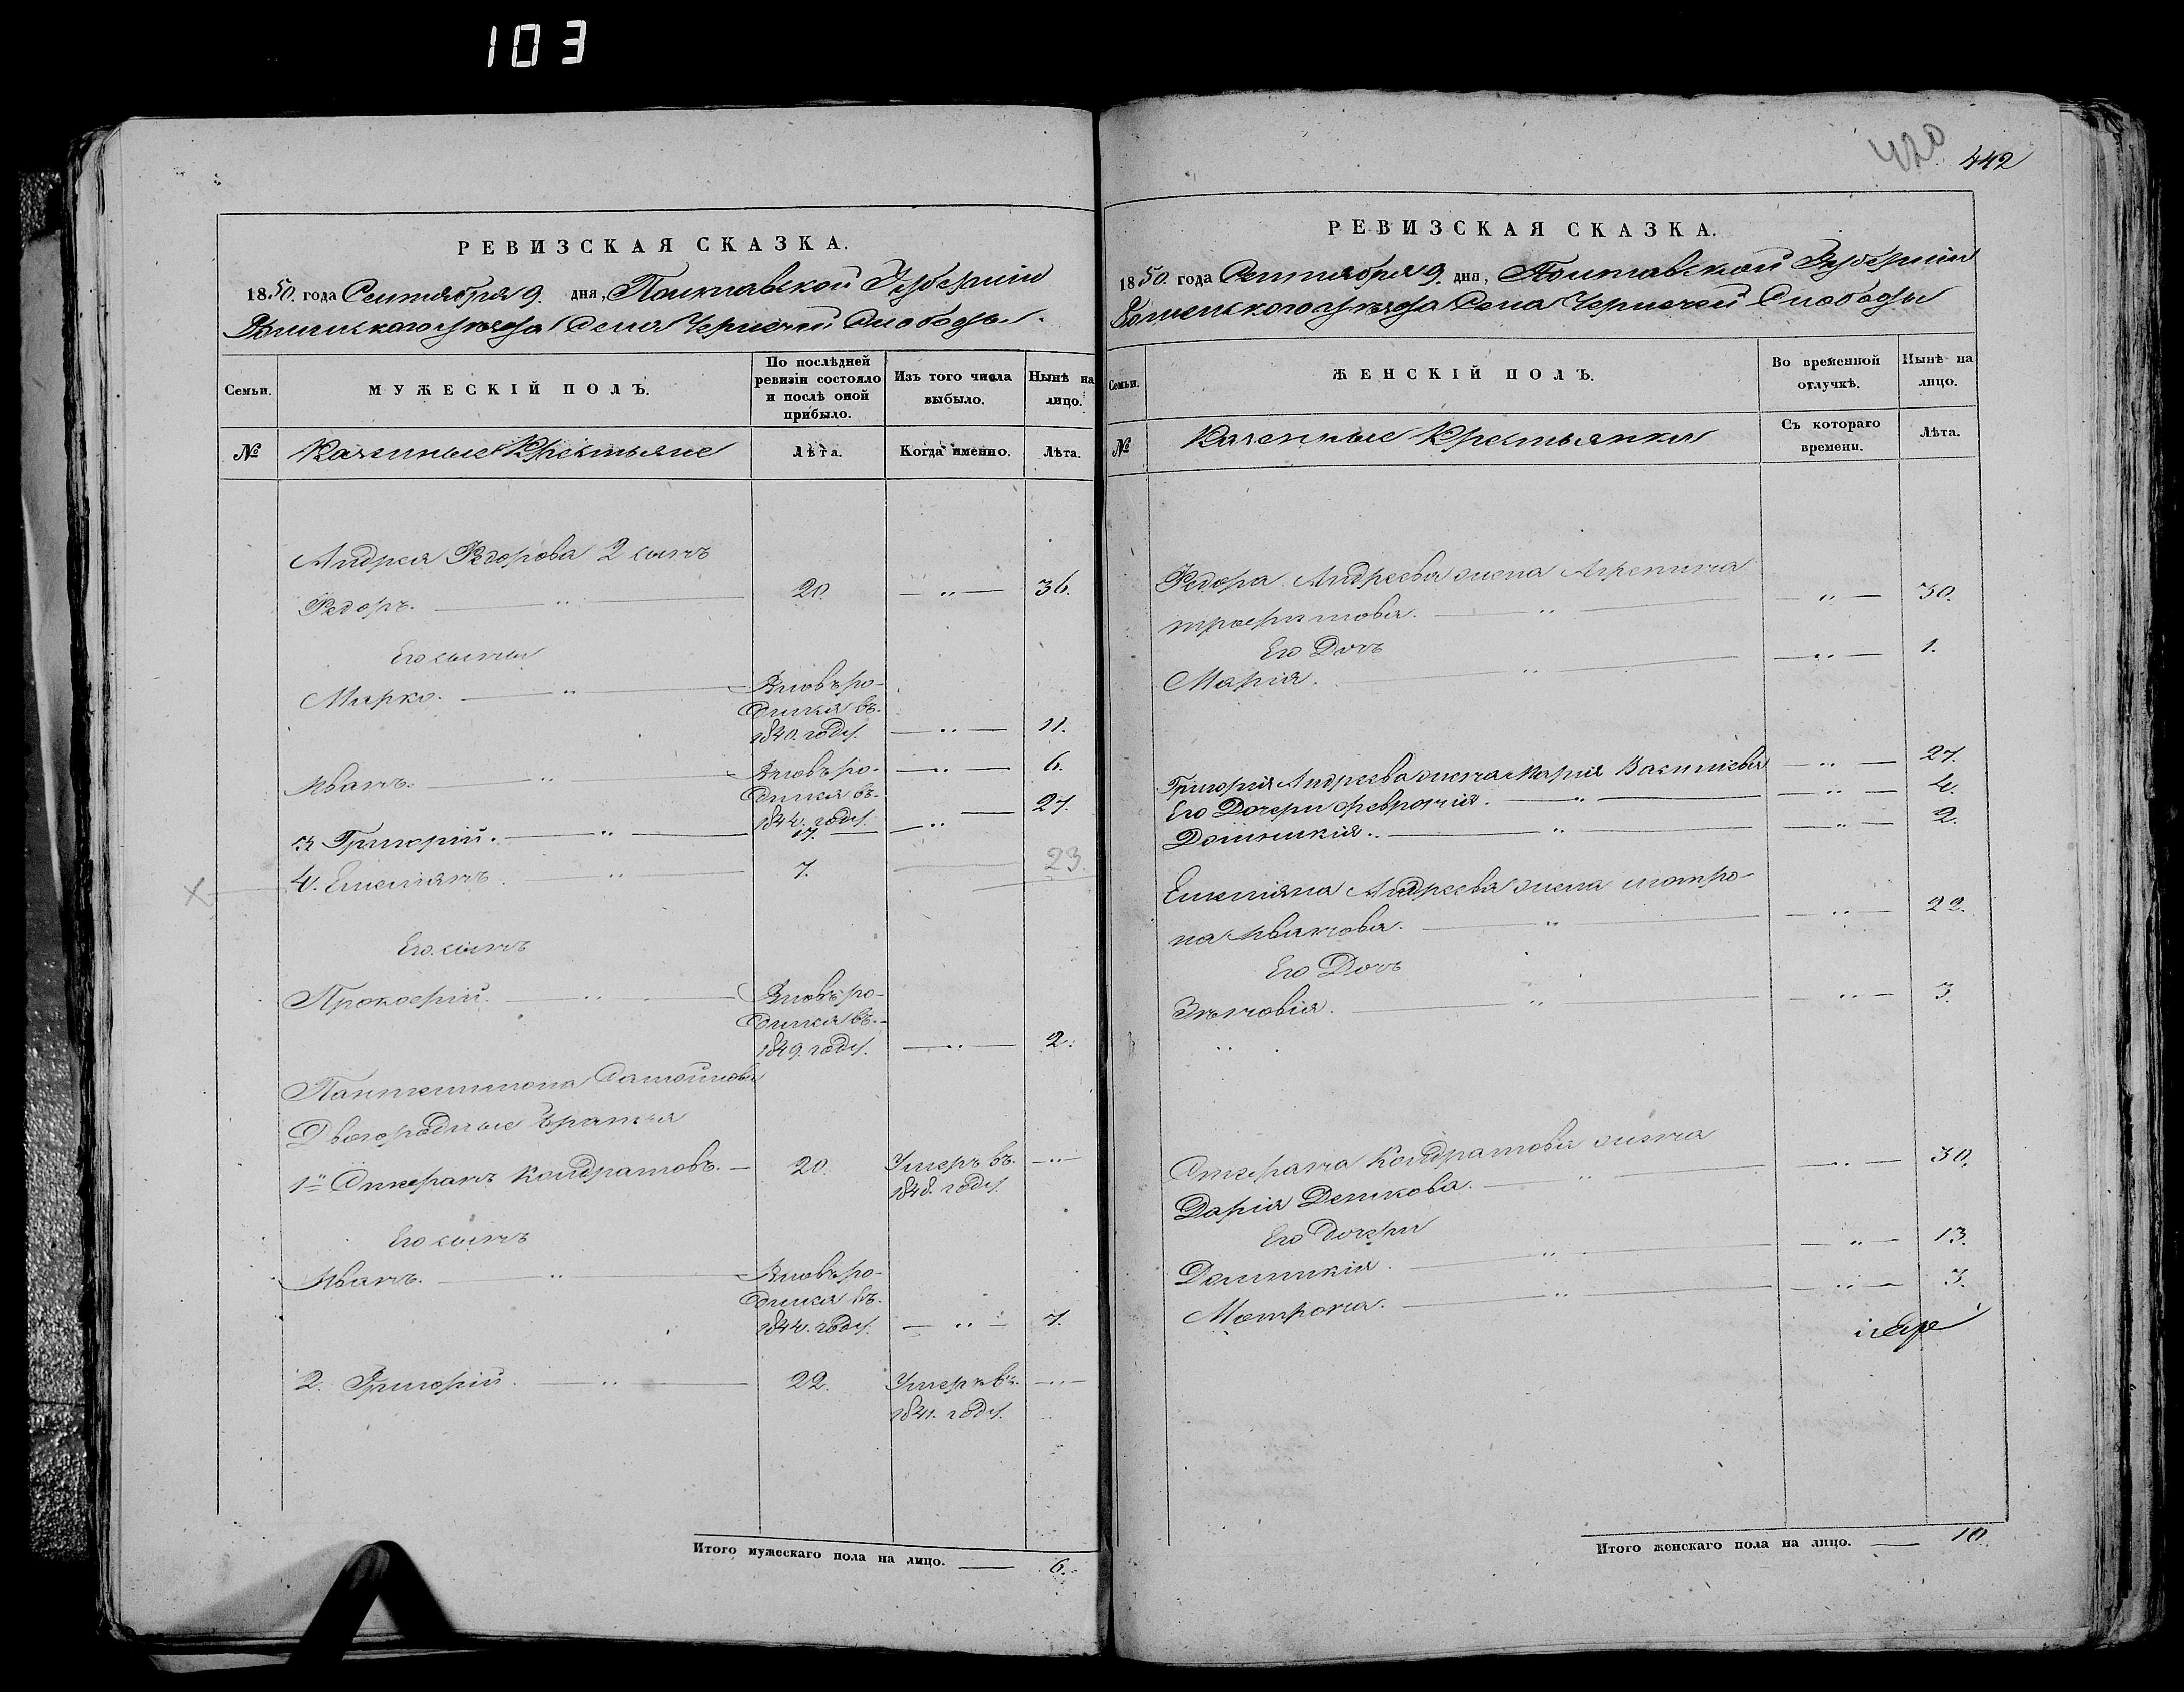 103
РЕВИЗСКАЯ СКАЗКА.
1850. года Сентября 9. дня, Полтавской Губерніи
Роменского уѣзда Села Чернечей Слободы.
Семьи.
МУЖЕСКІЙ ПОЛЪ.
По послѣдней ревизіи состояло и послѣ оной прибыло.
Изъ того числа выбыло.
Нынѣ на лицо.
№
Казенные Крестьяне
Лѣта.
Когда именно.
Лѣта.
Андрея Федорова 2 сынъ
Федоръ. — " — 20. — " — 36.
Его сыны
Марко. — " — Вновь ро-
дился въ
1840. году. — " — 11.
Иванъ. — " — Вновь ро- — " — 6.
дился въ
1844. году.
3 Григорій. — " — 17. — " — 27.
4. Емелянъ — " — 7. 23.
Его сынъ
Прокофій. — " — Вновь ро-
дился въ
1849. году. — " — 2.
Пантелимона Самойлова
Двоюродные братья
1й Стефанъ Кондратовъ. — 20. Умеръ въ — " —
1848. году.
Его сынъ
Иванъ. — " — Вновь ро-
дился въ
1844. году. — " — 7.
2. Григорій. — " — 22. Умеръ въ — " —
1841. году.
Итого мужескаго пола на лицо. — 6.
420
442
РЕВИЗСКАЯ СКАЗКА.
1850. года Сентября 9. дня, Полтавской Губерніи
Роменского уѣзда Села Чернечей Слободы
Семьи.
ЖЕНСКІЙ ПОЛЪ.
Во временной отлучкѣ.
Нынѣ на лицо.
№
Казенные Крестьянки
Съ котораго времени.
Лѣта.
Федора Андреева жена Агрепина
трофимова. — " — — " — 30.
Его Дочь
Марія. — " — — " — 1.
Григорія Андреева жена Марія Васильева — " — 27.
Его Дочери Февронія. — " — — " — 4.
Домникія. — " — — " — 2.
Емеляна Андреева жена мотро-
на Иванова. — " — — " — 22.
Его Дочь
Зѣновія. — " — — " — 3.
Стефана Кондратова жена
Дарія Демкова. — " — — " — 30.
Его Дочери
Домникія. — " — — " — 13.
Мотрона. — " — — " — 3.
Итого женскаго пола на лицо. — 10.